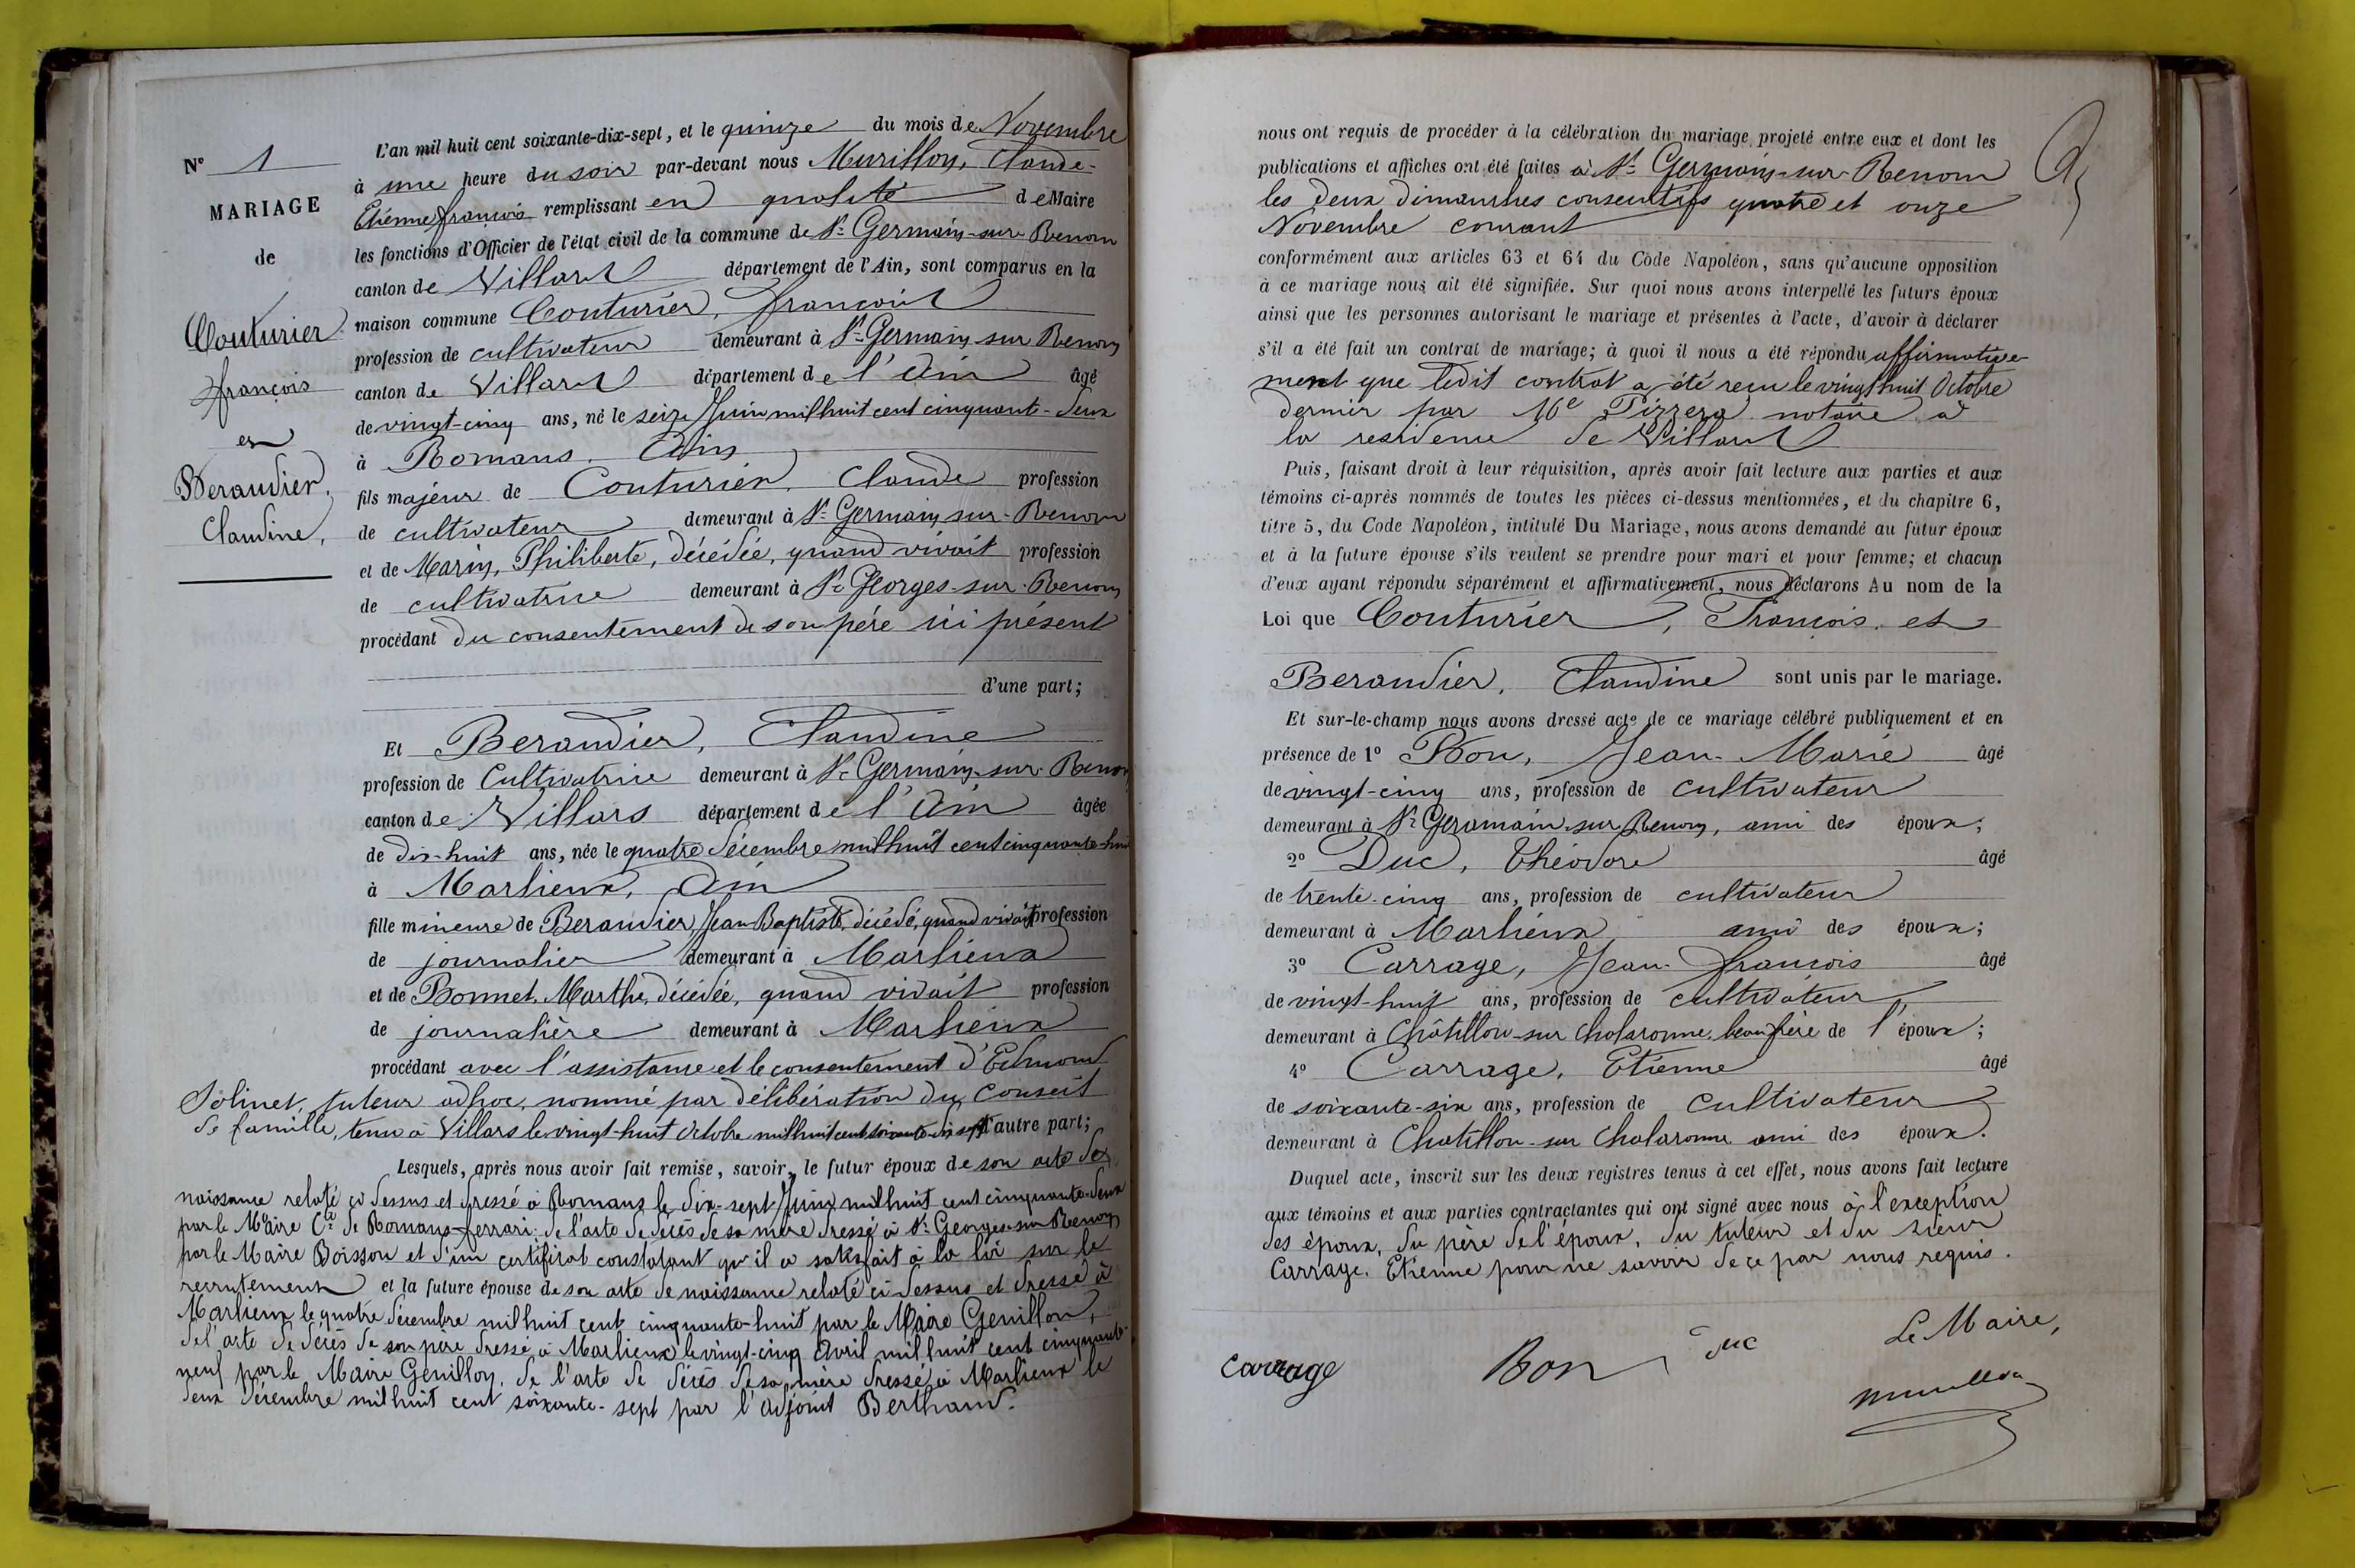 N° 1
MARIAGE
de
Couturier
françois
et
Beraudier,
Claudine,
L'an mil huit cent soixante-dix-sept, et le quinze du mois de Novembre
à une heure du soir par-devant nous Murillon, Claude-
Etienne françois remplissant en qualité de Maire
les fonctions d'Officier de l'état civil de la commune de St Germain-sur-Renom
canton de Villars département de l'Ain, sont comparus en la
maison commune Couturier, françois
profession de cultivateur demeurant à St Germain-sur Renom
canton de Villars département de l'Ain âgé
de vingt-cinq ans, né le seize Juin mil huit cent cinquante-deux
à Romans. Ain
fils majeur de Couturier, Claude profession
de cultivateur demeurant à St Germain sur-Renom
et de Marin, Philiberte, décédée, quand vivait profession
de cultivatrice demeurant à St Georges-sur-Renom
procédant du consentement de son père ici présent
d'une part;
Et Beraudier, Claudine
profession de Cultivatrice demeurant à St Germain-sur-Renom
canton de Villars département de l'Ain âgée
de dix-huit ans, née le quatre décembre mil huit cent cinquante-huit
à Marlieux, Ain
fille mineure de Beraudier, Jean Baptiste, décédé, quand vivait profession
de journalier demeurant à Marlieux
et de Bonnet Marthe, décédée, quand vivait profession
de journalière demeurant à Marlieux
procédant avec l'assistance et le consentement d'Edmond
Solinet, tuteur adhoc, nommé par délibération du Conseil
de famille, tenu à Villars le vingt-huit octobre mil huit cent soixante-dix sept d'autre part;
Lesquels, après nous avoir fait remise, savoir, le futur époux de son acte de
naissance relaté ci dessus et dressé à Romans le dix-sept Juin mil huit cent cinquante-deux
par le Maire Cte de Romans-ferrari; de l'acte de décès de sa mère dressé à St Georges-sur-Renom
par le Maire Boisson et d'un certificat constatant qu'il a satisfait à la loi sur le
recrutement et la future épouse de son acte de naissance relaté ci dessus et dressé à
Marlieux le quatre décembre mil huit cent cinquante-huit par le Maire Genillon,
de l'acte de décès de son père dressé à Marlieux le vingt-cinq Avril mil huit cent cinquante-
neuf par le Maire Genillon, de l'acte de décès de sa mère dressé à Marlieux le
deux décembre mil huit cent soixante-sept par l'adjoint Berthaud.
nous ont requis de procéder à la célébration du mariage projeté entre eux et dont les
publications et affiches ont été faites à St Germain-sur-Renom
les deux dimanches consecutifs quatre et onze
Novembre courant
conformément aux articles 63 et 64 du Code Napoléon, sans qu'aucune opposition
à ce mariage nous ait été signifiée. Sur quoi nous avons interpellé les futurs époux
ainsi que les personnes autorisant le mariage et présentes à l'acte, d'avoir à déclarer
s'il a été fait un contrat de mariage; à quoi il nous a été répondu affirmative-
ment que ledit contrat a été reçu le vingt huit Octobre
dernier par Me Pizzera notaire à
la residence de Villars
Puis, faisant droit à leur réquisition, après avoir fait lecture aux parties et aux
témoins ci-après nommés de toutes les pièces ci-dessus mentionnées, et du chapitre 6,
titre 5, du Code Napoléon, intitulé Du Mariage, nous avons demandé au futur époux
et à la future épouse s'ils veulent se prendre pour mari et pour femme; et chacun
d'eux ayant répondu séparément et affirmativement, nous déclarons Au nom de la
Loi que Couturier, François. et
Beraudier, Claudine sont unis par le mariage.
Et sur-le-champ nous avons dressé acte de ce mariage célébré publiquement et en
présence de 1° Bon, Jean-Marie âgé
de vingt-cinq ans, profession de cultivateur
demeurant à St Geramain-sur Renom, ami des époux;
2° Duc, Théodore âgé
de trente-cinq ans, profession de cultivateur
demeurant à Marlieux ami des époux;
3° Carrage, Jean-françois âgé
de vingt-huit ans, profession de cultivateur,
demeurant à Châtillon-sur Chalaronne, beau frère de l'époux;
4° Carrage, Etienne âgé
de soixante-six ans, profession de Cultivateur
demeurant à Chatillon-sur Chalaronne ami des époux.
Duquel acte, inscrit sur les deux registres tenus à cet effet, nous avons fait lecture
aux témoins et aux parties contractantes qui ont signé avec nous à l'exception
des époux, du père de l'époux, du tuteur et du sieur
Carrage. Etienne pour ne savoir de ce par nous requis.
Le Maire,
carrage Bon Duc
murillon